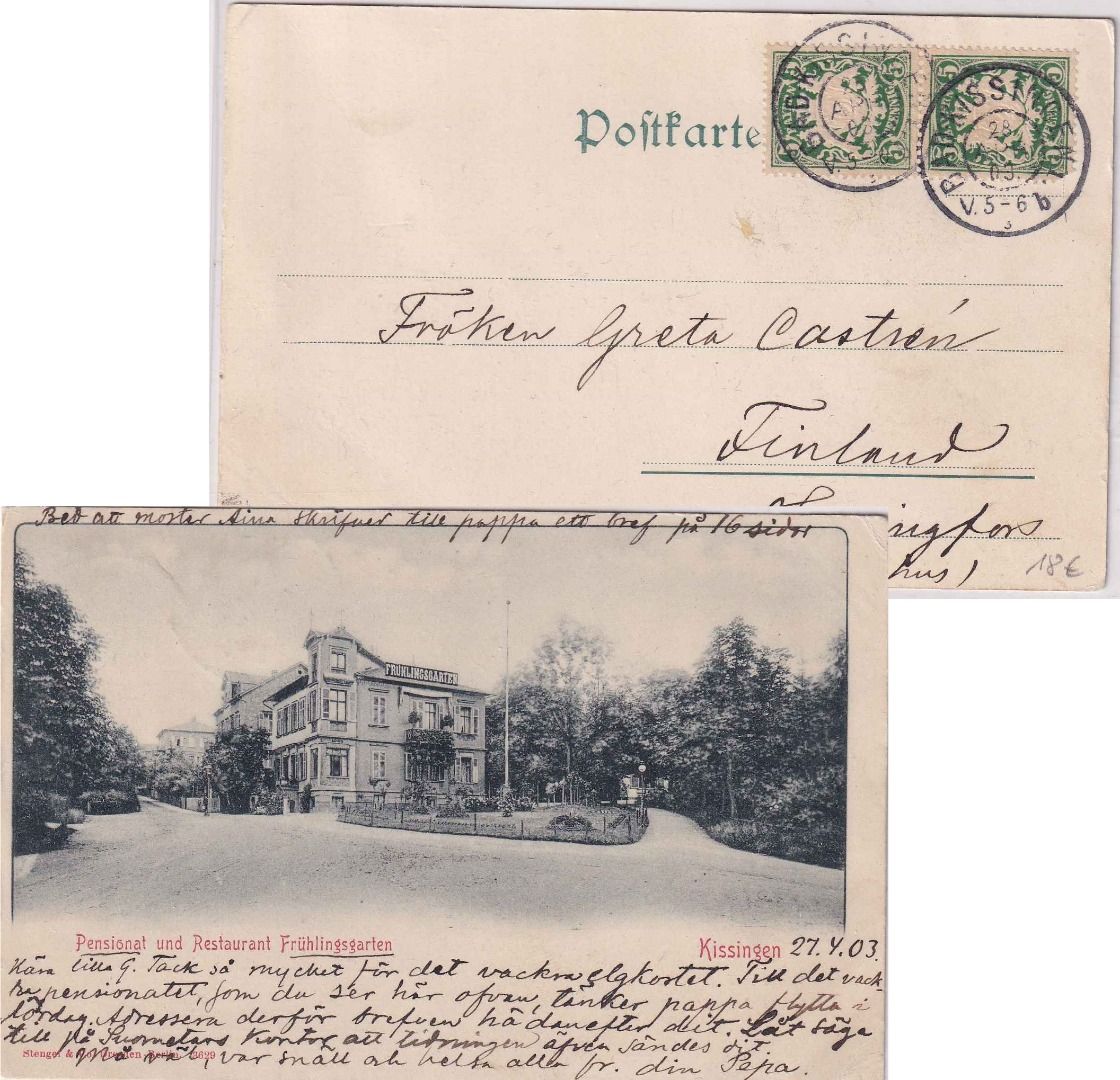 Postkarte
BAD KISSINGEN
V. 5-6
BAD KISSINGEN
28
03.
V. 5-6 b
3
Fröken Greta Castrén
Finland
ngfors
hus)
18€
Bed att moster Aina skrifver till pappa ett bref på 16 sidor
FRÜHLINGSGARTEN
Pensionat und Restaurant Frühlingsgarten
Kissingen 27.4.03.
Kära lilla G. Tack så mycket för det vackra elgkortet. Till det vack-
ra pensionatet, som du ser här ofvan, tänker pappa flytta i
lördag. Adressera derför brefven hädanefter dit. Låt säga
till på Suometars Kontor att tidningen äfven sändes dit.
Må väl, var snäll och helsa alla fr. din Papa.
Stengel & Co. Dresden Berlin 3629